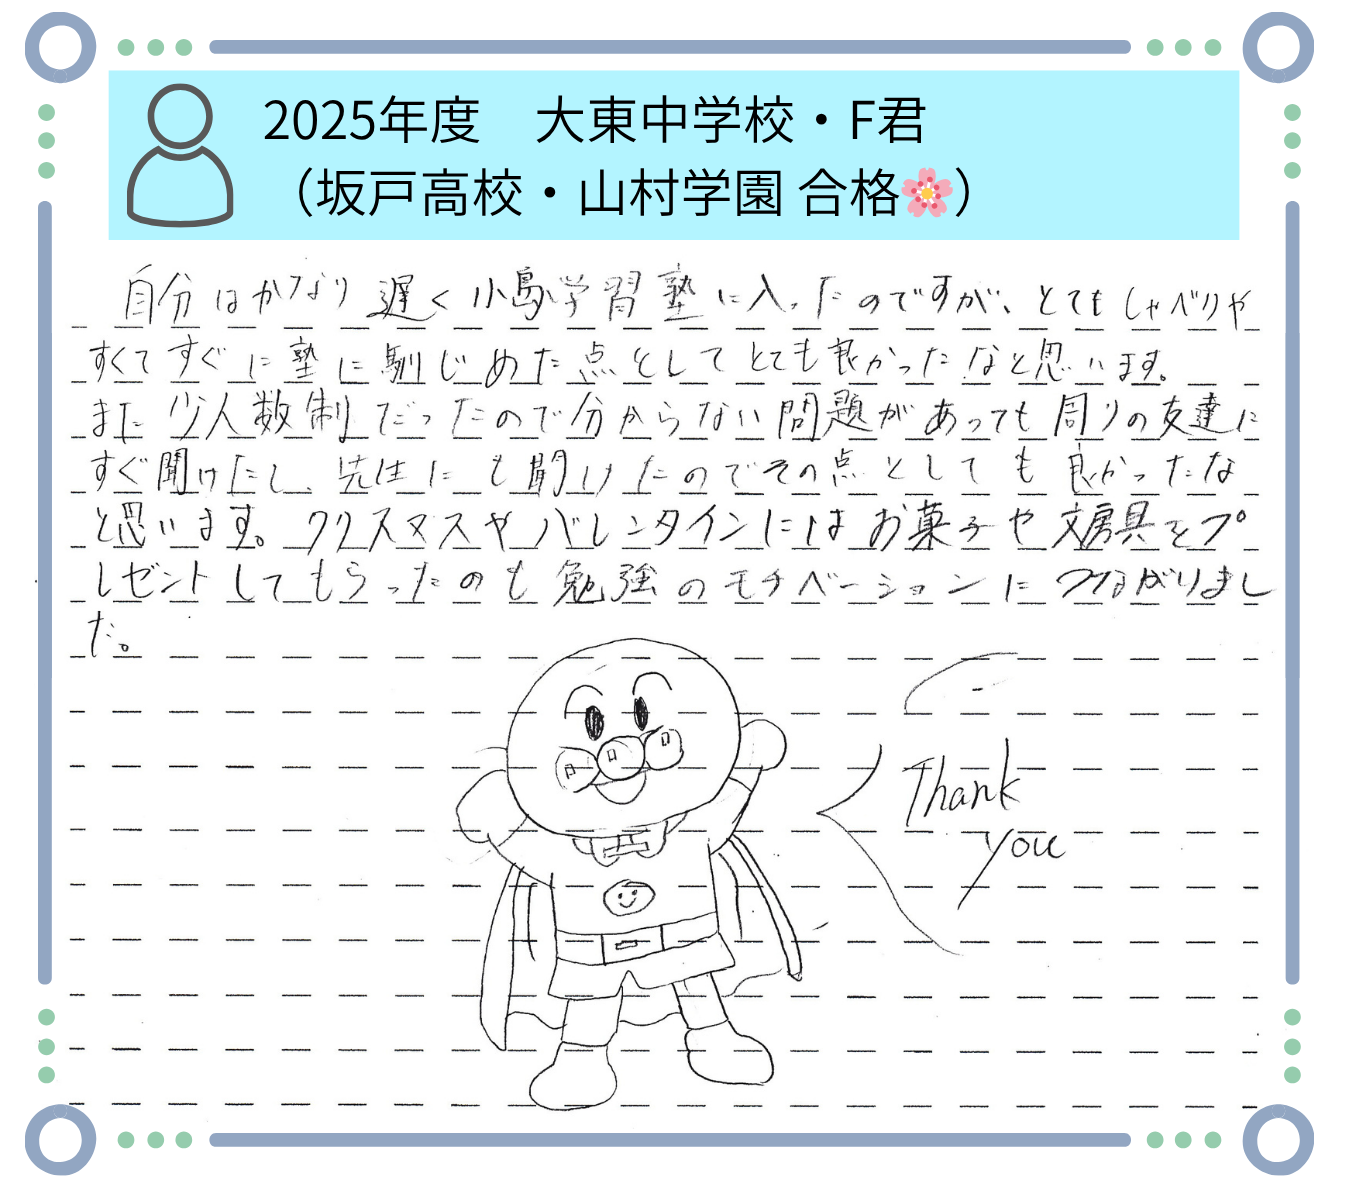 2025年度　大東中学校・F君
（坂戸高校・山村学園 合格🌸）
自分はかなり遅く小島学習塾に入ったのですが、とてもしゃべりや
すくてすぐに塾に馴じめた点としてとても良かったなと思います。
また少人数制だったので分からない問題があっても周りの友達に
すぐ聞けたし、先生にも聞けたのでその点としても良かったな
と思います。クリスマスやバレンタインにはお菓子や文房具をプ
レゼントしてもらったのも勉強のモチベーションにつながりまし
た。
Thank
you